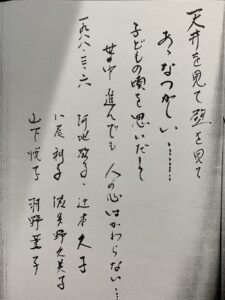 天井を見て 壁を見て
あゝなつかしい………
子どもの頃を思いだして
世の中 進んでも 人の心はかわらない…
一九八八・三・六
久子
利子 久美子
山下悦子 羽野 子